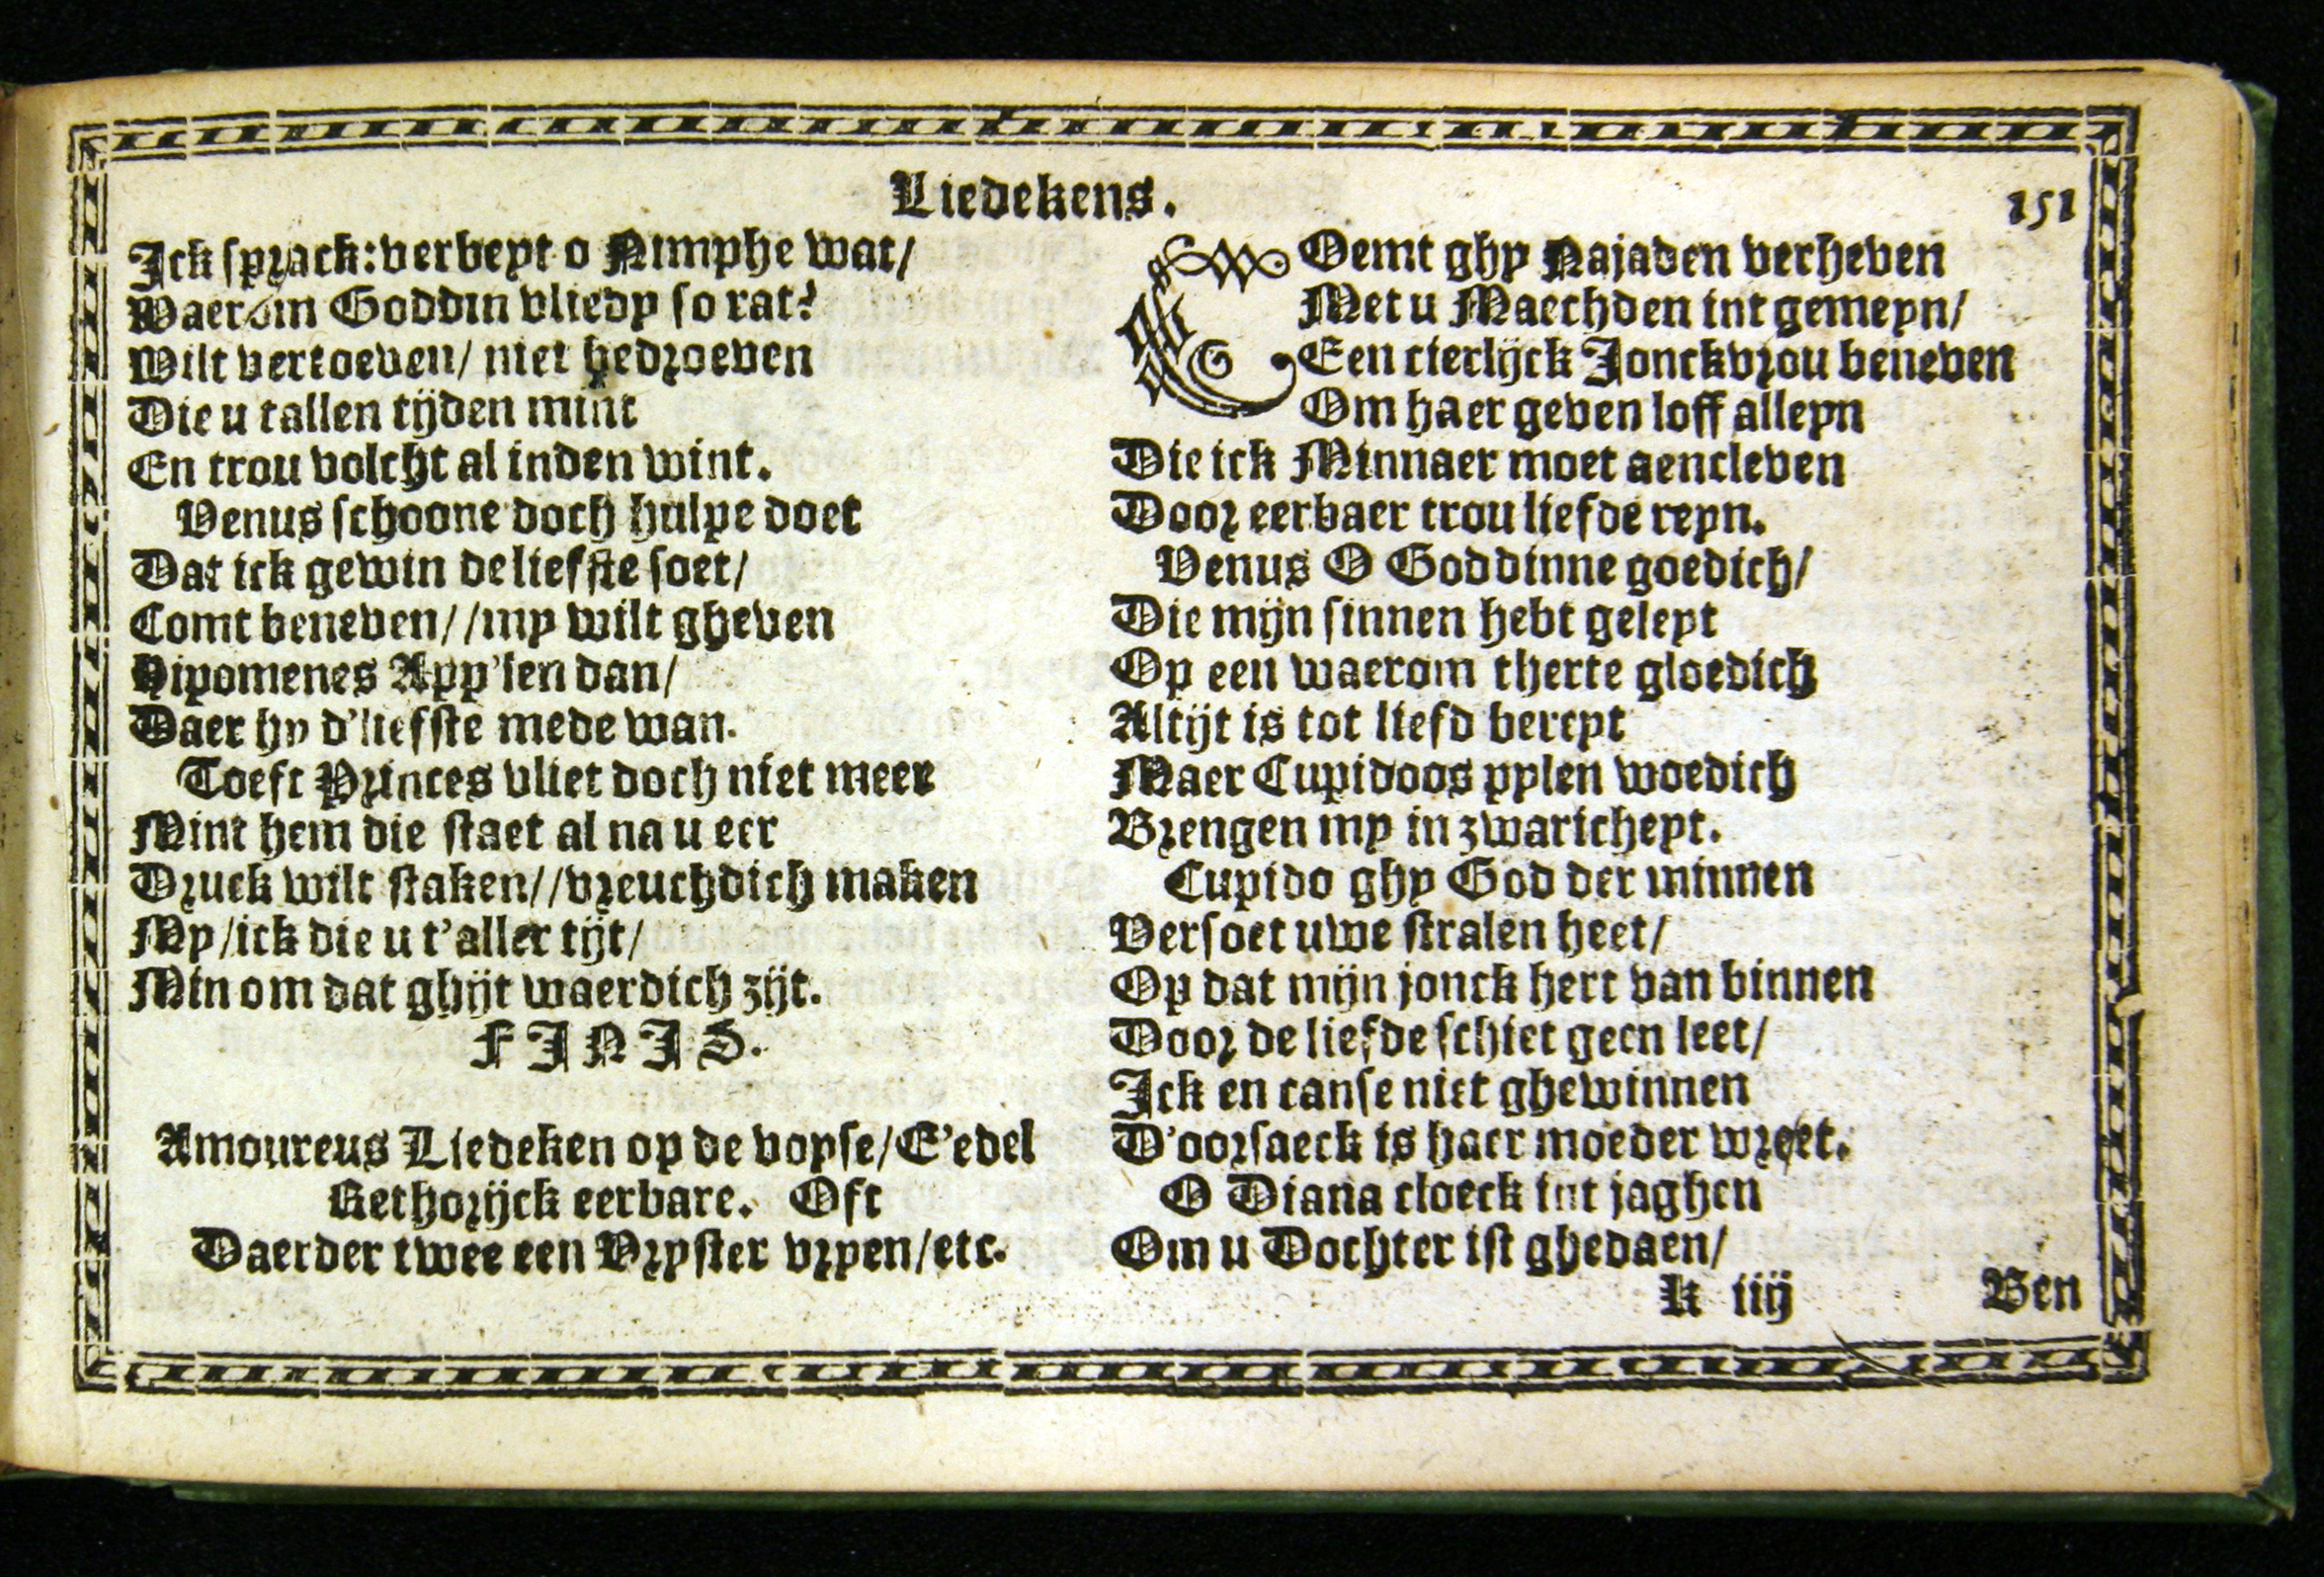 Liedekens. 151
Ick sprack: verbeyt o Nimphe wat/
Waerom Goddin vliedy so rat?
Wilt vertoeven/ niet bedroeven
Die u tallen tijden mint
En trou volcht al inden wint.
Venus schoone doch hulpe doet
Dat ick gewin de liefste soet/
Comt beneven//my wilt gheven
Hipomenes App'len dan/
Daer hy d'liefste mede wan.
Toeft Princes vliet doch niet meer
Mint hem die staet al na u eer
Druck wilt staken//vreuchdich maken
My/ick die u t'aller tijt/
Min om dat ghijt waerdich zijt.
FINIS.
Amoureus Liedeken op de voyse/E'edel
Rethorijck eerbare. Oft
Daerder twee een Vryster vryen/etc.
COemt ghy Najaden verheven
Met u Maechden int gemeyn/
Een cierlijck Jonckvrou beneven
Om haer geven loff alleyn
Die ick Minnaer moet aencleven
Door eerbaer trou liefde reyn.
Venus O Goddinne goedich/
Die mijn sinnen hebt geleyt
Op een waerom therte gloedich
Altijt is tot liefd bereyt
Maer Cupidoos pylen woedich
Brengen my in zwaricheyt.
Cupido ghy God der minnen
Versoet uwe stralen heet/
Op dat mijn jonck hert van binnen
Door de liefde schiet geen leet/
Ick en canse niet ghewinnen
D'oorsaeck is haer moeder wreet.
O Diana cloeck int jaghen
Om u Dochter ist ghedaen/
K iiij Ben